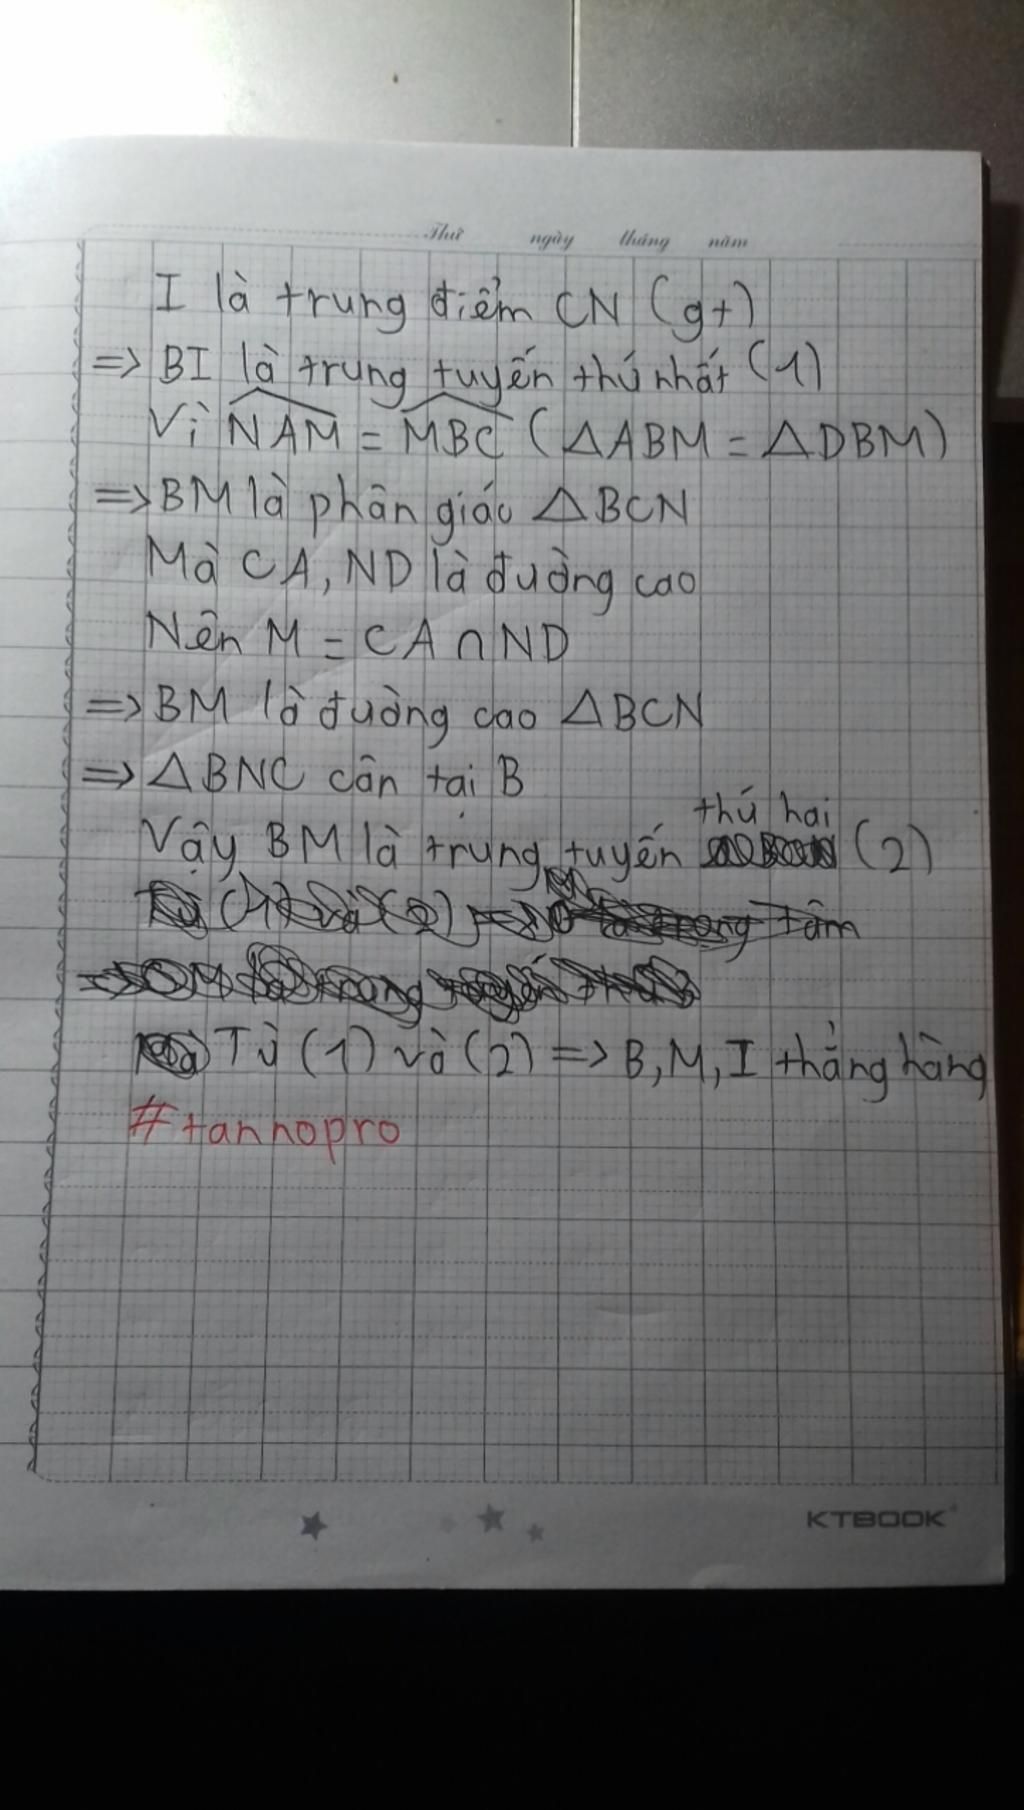 Thứ ngày tháng năm
I là trung điểm CN (gt)
=> BI là trung tuyến thứ nhất (1)
Vì NAM = MBC (ΔABM = ΔDBM)
=> BM là phân giác ΔBCN
Mà CA, ND là đường cao
Nên M = CA ∩ ND
=> BM là đường cao ΔBCN
=> ΔBNC cân tại B
Vậy BM là trung tuyến thứ hai (2)
Từ (1) và (2) => B, M, I thẳng hàng
#tannopro
KTBOOK